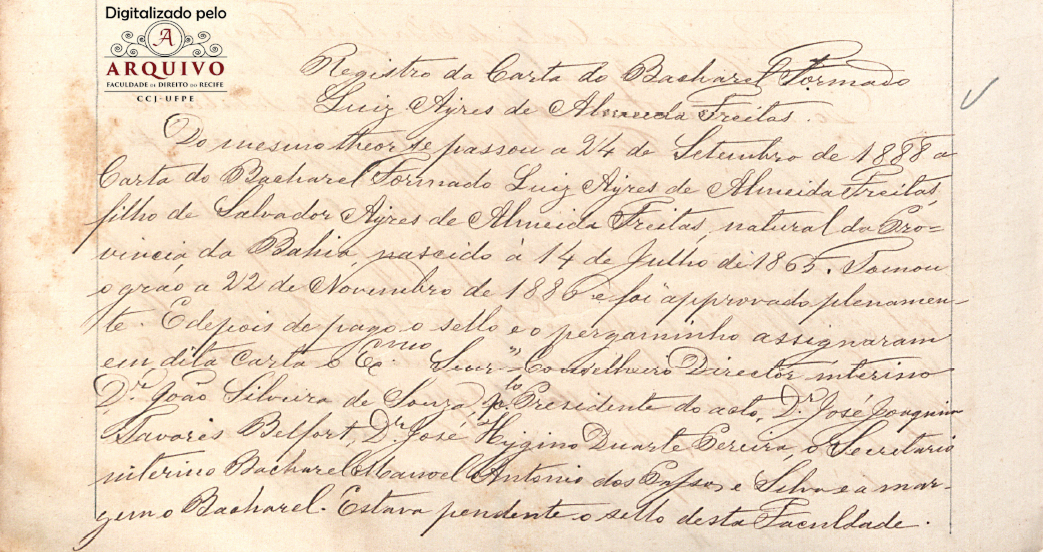 Digitalizado pelo
A
ARQUIVO
FACULDADE DE DIREITO DO RECIFE
CCJ-UFPE
Registro da Carta do Bacharel Formado
Luiz Ayres de Almeida Freitas.
Do mesmo theor se passou a 24 de Setembro de 1888 a
Carta do Bacharel Formado Luiz Ayres de Almeida Freitas,
filho de Salvador Ayres de Almeida Freitas, natural da Pro=
vincia da Bahia, nascido à 14 de Julho de 1865. Tomou
o gráo a 22 de Novembro de 1886 e foi approvado plenamen-
te. E depois de pago o sello e o pergaminho assignaram
em dita carta o Exmo Senr Conselheiro Director interino
Dr. João Silveira de Souza, Presidente do acto, Dr. José Joaquim
Tavares Belfort, Dr. José Hygino Duarte Pereira, o Secretario
interino Bacharel Manoel Antonio dos Passos e Silva e a mar-
gem o Bacharel. Estava pendente o sello desta Faculdade.